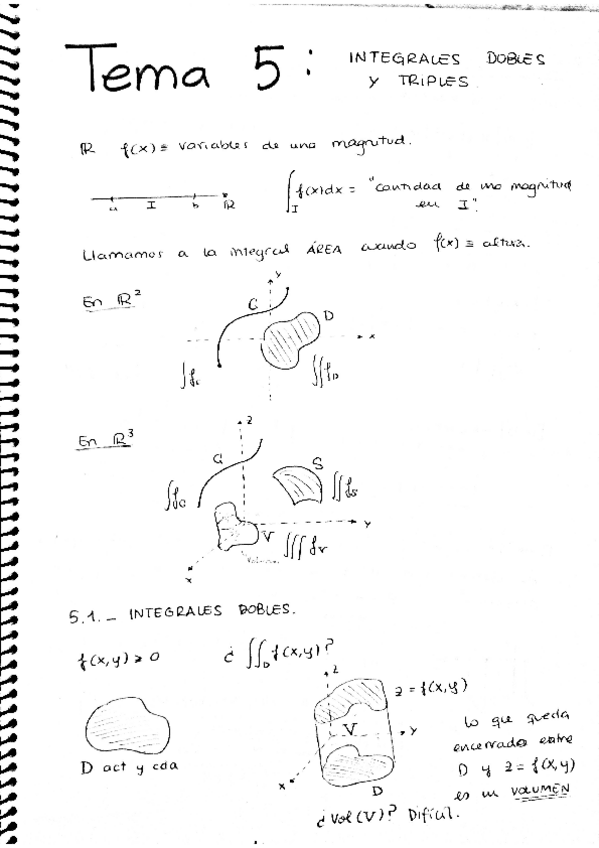 Tema 5: INTEGRALES DOBLES
Y TRIPLES
ℝ f(x) ≡ variables de una magnitud.
a I b ℝ
∫_I f(x)dx = "cantidad de una magnitud
en I".
Llamamos a la integral ÁREA cuando f(x) ≡ altura.
En ℝ²
y
C
D
x
∫f_C
∬f_D
En ℝ³
z
C
S
∫f_C
∬f_S
y
V
∭f_V
x
5.1.- INTEGRALES DOBLES.
f(x,y) ≥ 0 ¿ ∬_D f(x,y)?
z
z = f(x,y)
V
y
x
D
D act y cda
lo que queda
encerrado entre
D y z = f(x,y)
es un VOLUMEN
¿Vol(V)? Difícil.